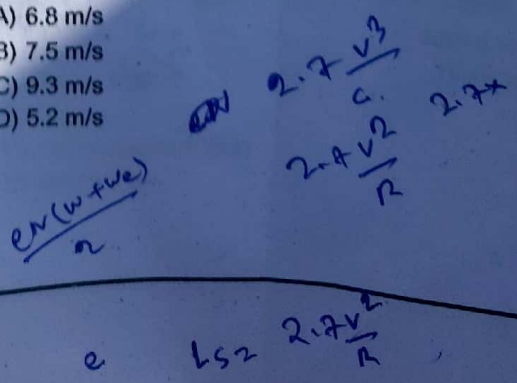 A) 6.8 m/s
B) 7.5 m/s
C) 9.3 m/s
D) 5.2 m/s
2.7 v3/c.
2.7 v2/R
2.7x
eN(w+we)/n
e Ls= 2.7v2/R